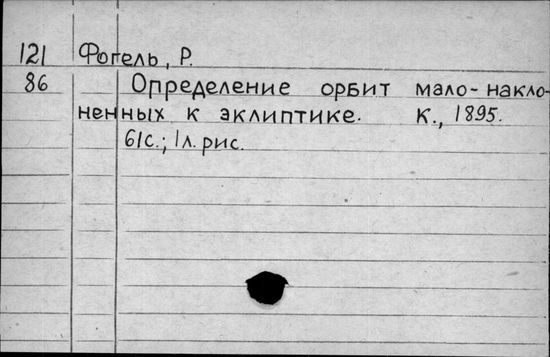 121 Фогель, Р.
86 Определение орбит мало-накло-
ненных к эклиптике. К., 1895.
61с.; 1л. рис.